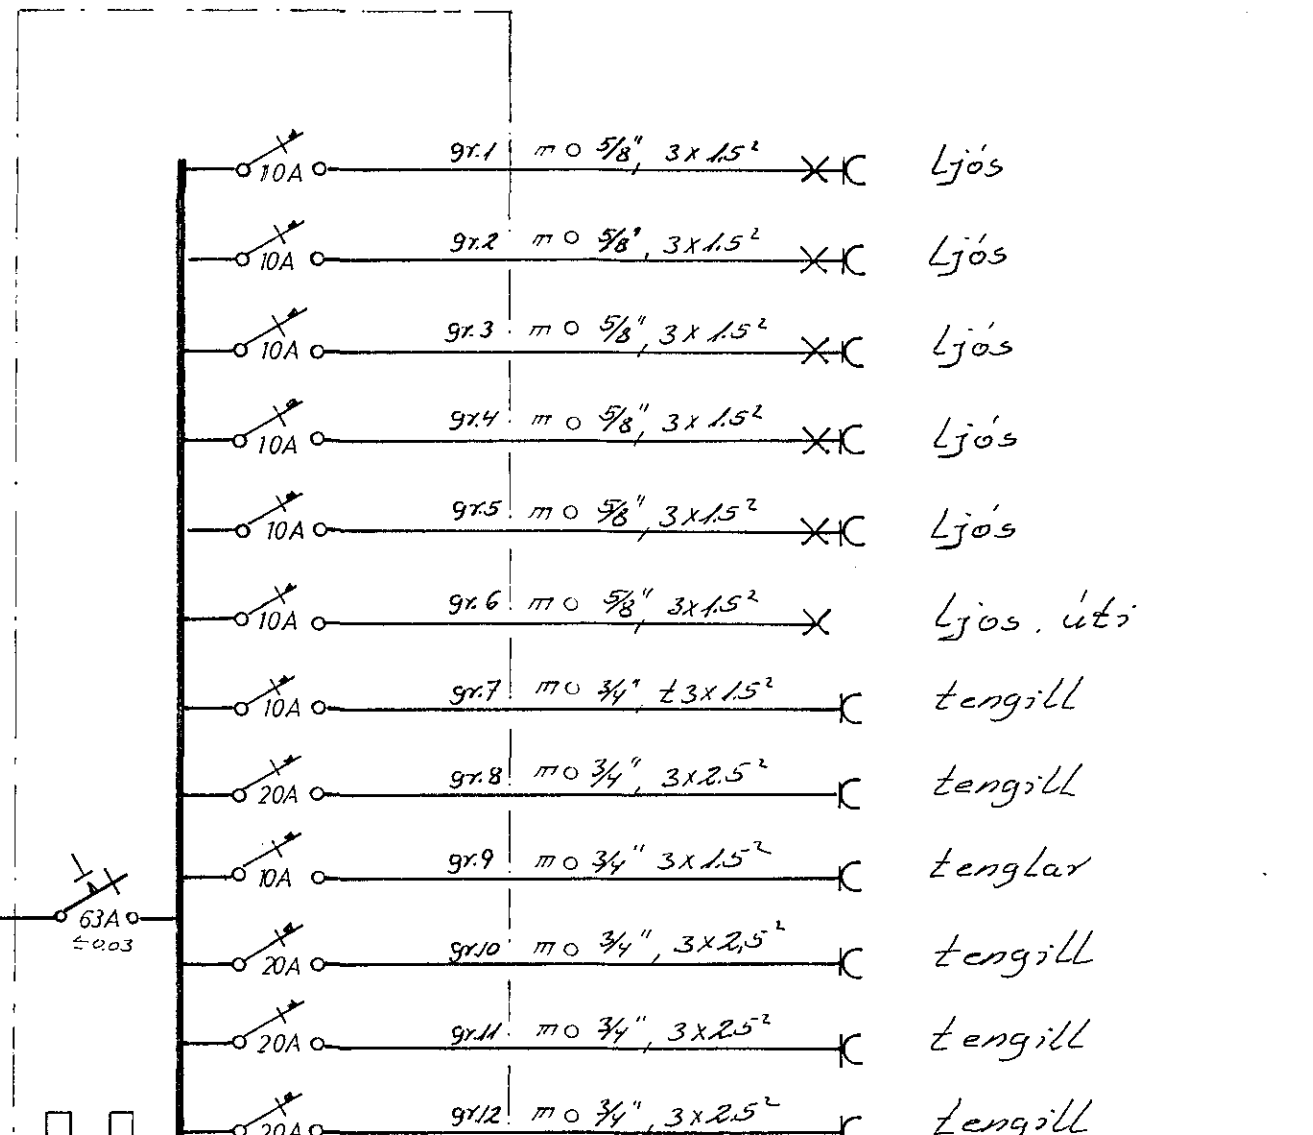 gr.1 m o 5/8", 3 x 1.5² Ljós
10A
gr.2 m o 5/8", 3 x 1.5² Ljós
10A
gr.3 m o 5/8", 3 x 1.5² Ljós
10A
gr.4 m o 5/8", 3 x 1.5² Ljós
10A
gr.5 m o 5/8", 3 x 1.5² Ljós
10A
gr.6 m o 5/8", 3x1.5² Ljos . úti
10A
gr.7 m o 3/4", t 3 x 1.5² tengill
10A
gr.8 m o 3/4", 3 x 2.5² tengill
20A
gr.9 m o 3/4" 3 x 1.5² tenglar
10A
63A
≤0.03
gr.10 m o 3/4", 3 x 2,5² tengill
20A
gr.11 m o 3/4", 3 x 2.5² tengill
20A
gr.12 m o 3/4", 3 x 2.5² tengill
20A